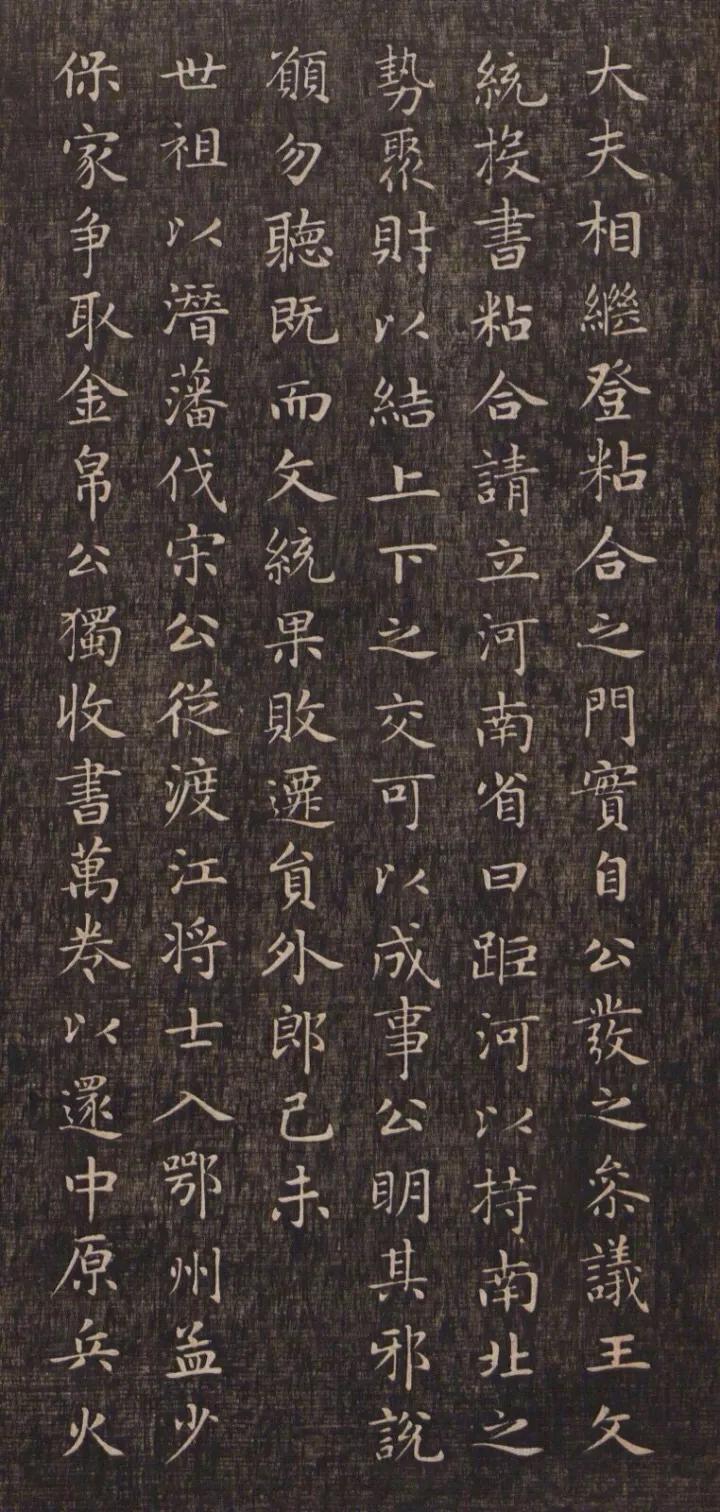 大夫相繼登粘合之門實自公發之叅議王文
統投書粘合請立河南省曰距河以持南北之
勢聚財以結上下之交可以成事公明其邪說
願勿聽既而文統果敗遷貟外郎己未
世祖以潛藩伐宋公從渡江將士入鄂州孟少
保家争取金帛公獨收書萬卷以還中原兵火